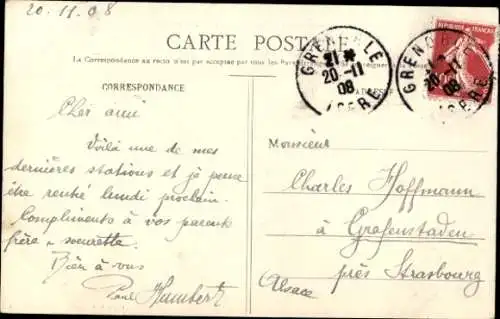 20.11.08
CARTE POSTALE
La Correspondance au recto n'est pas acceptée par tous les
CORRESPONDANCE
GRENOBLE
21 *
20-11
08
ISERE
GRENOBLE
20-11
08
ISERE
REPUBLIQUE FRANÇAISE
Cher ami
Voilà une de mes
dernières stations et je pense
être rentré lundi prochain.
Compliments à vos parents
frère & soeurette.
Bien à vous
Paul Humbert
Monsieur
Charles Hoffmann
à Grafenstaden
près Strasbourg
Alsace